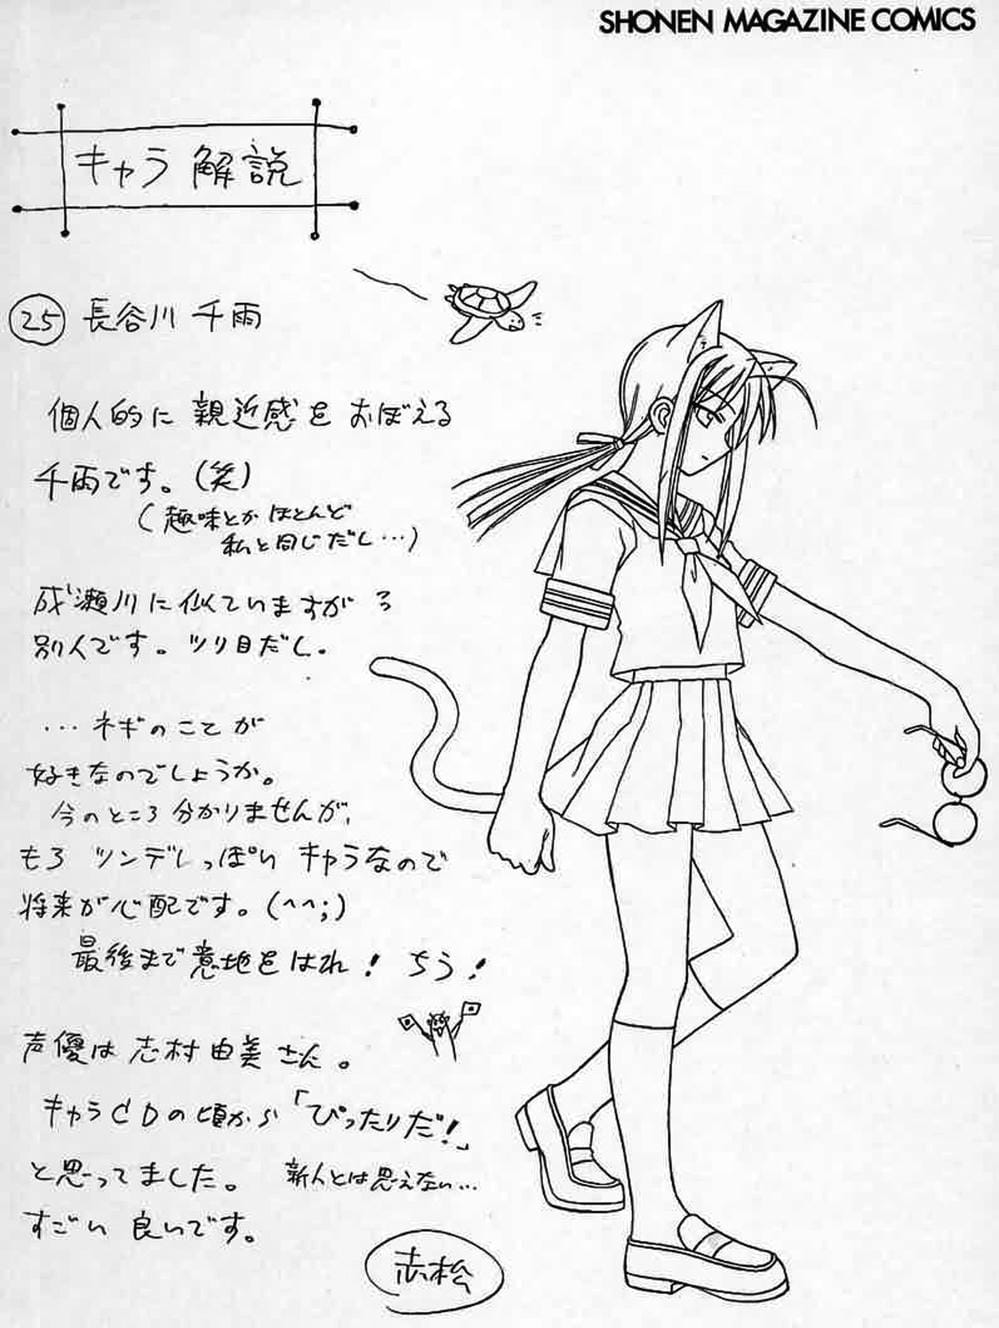 SHONEN MAGAZINE COMICS
キャラ 解説
25 長谷川 千雨
個人的に 親近感を おぼえる
千雨です。(笑)
(趣味とか ほとんど
私と同じだし…)
成瀬川に似ていますが
別人です。ツリ目だし。
…ネギのことが
好きなのでしょうか。
今のところ分かりませんが、
もろ ツンデレっぽい キャラなので
将来が心配です。(^^;)
最後まで意地をはれ! ちう!
声優は 志村由美さん。
キャラCDの頃から「ぴったりだ!」
と思ってました。 新人とは思えない…
すごい 良いです。
赤松